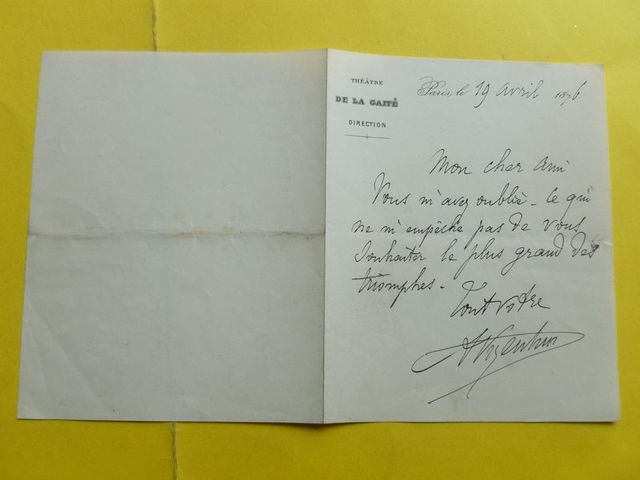 THÉÂTRE
DE LA GAITÉ
DIRECTION
Paris, le 19 avril 1876
Mon cher ami
Vous m'avez oublié - ce qui
ne m'empêche pas de vous
souhaiter le plus grand des
triomphes -
Tout votre
AVizentini